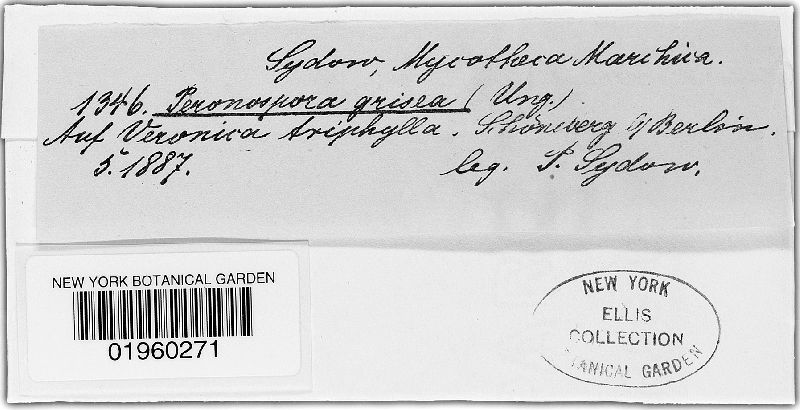 Sydow, Mycotheca Marchica.
1346. Peronospora grisea (Ung.)
Auf Veronica triphylla. Schöneberg b/Berlin.
5. 1887. leg. P. Sydow.
NEW YORK BOTANICAL GARDEN
01960271
NEW YORK
ELLIS
COLLECTION
TANICAL GARDEN